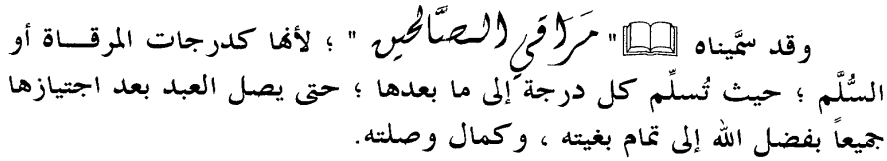 وقد سمَّيناه " مَرَاقي الصَّالحين " ؛ لأنها كدرجات المرقاة أو
السُّلَّم ؛ حيث تُسلِّم كل درجة إلى ما بعدها ؛ حتى يصل العبد بعد اجتيازها
جميعاً بفضل الله إلى تمام بغيته ، وكمال وصلته.